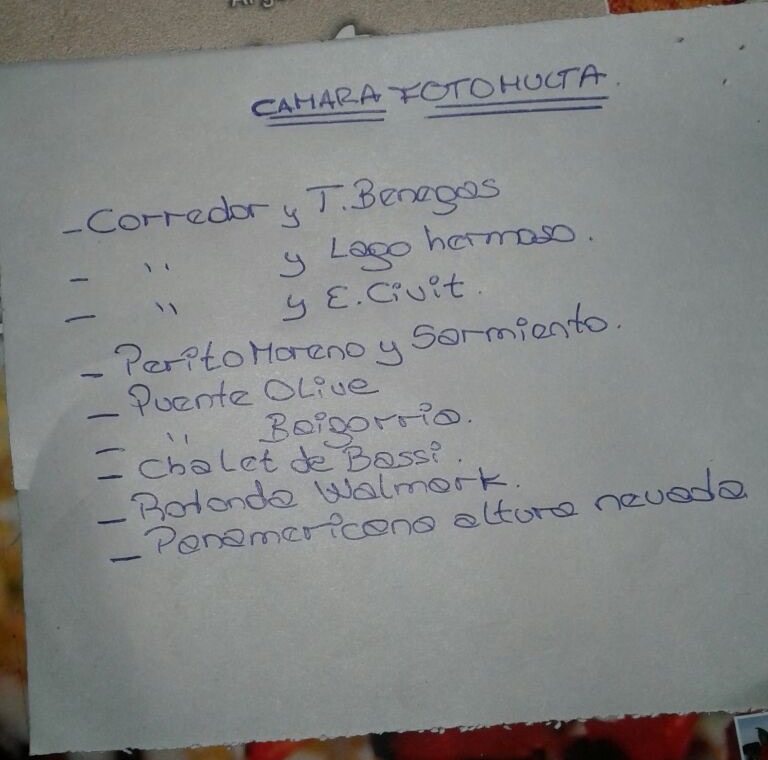 CAMARA FOTOMULTA.
- Corredor y T. Benegas
- " y Lago hermoso.
- " y E. Civit.
- Perito Moreno y Sarmiento.
- Puente Olive
- " Baigorria.
- Chalet de Bassi.
- Rotonda Walmark.
- Panamericana altura nevada